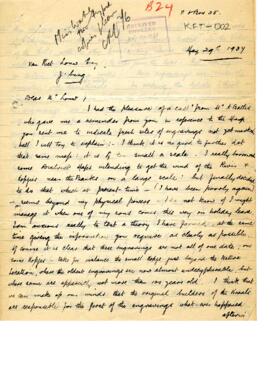 B24
P.O Box 25.
KFT-002
May 29th 1934
Van Riet Lowe Esq
J'burg
Dear Mr Lowe,
I had the pleasure of a call from
who gave me a reminder from you in reference to the Map
you sent me to indicate fresh sites of engravings not yet marked
Well I will try to explain :- I think it is no good to further dot
that same map; it is of too small a scale. I really
to get the wind of the River &
kopjes near thereabouts on a large scale! but finally decided
to do that which at present time - (I have been poorly again)
seems beyond my physical powers - I do not know if I might
manage it when one of my sons comes this way on holiday
from overseas really to test a theory I have formed, at the same
time giving the information you require as clearly as possible.
Of course it is clear that these engravings are not all of one date; on
some kopjes - take for instance the small kopje just beyond the Native
Location, where the oldest engravings are now almost undecipherable but
whose some are apparently not more than 100 years old. I think that
we can make up our minds that the original builders of the Kraals
are responsible for the first of the engravings what ever happened
afterwards